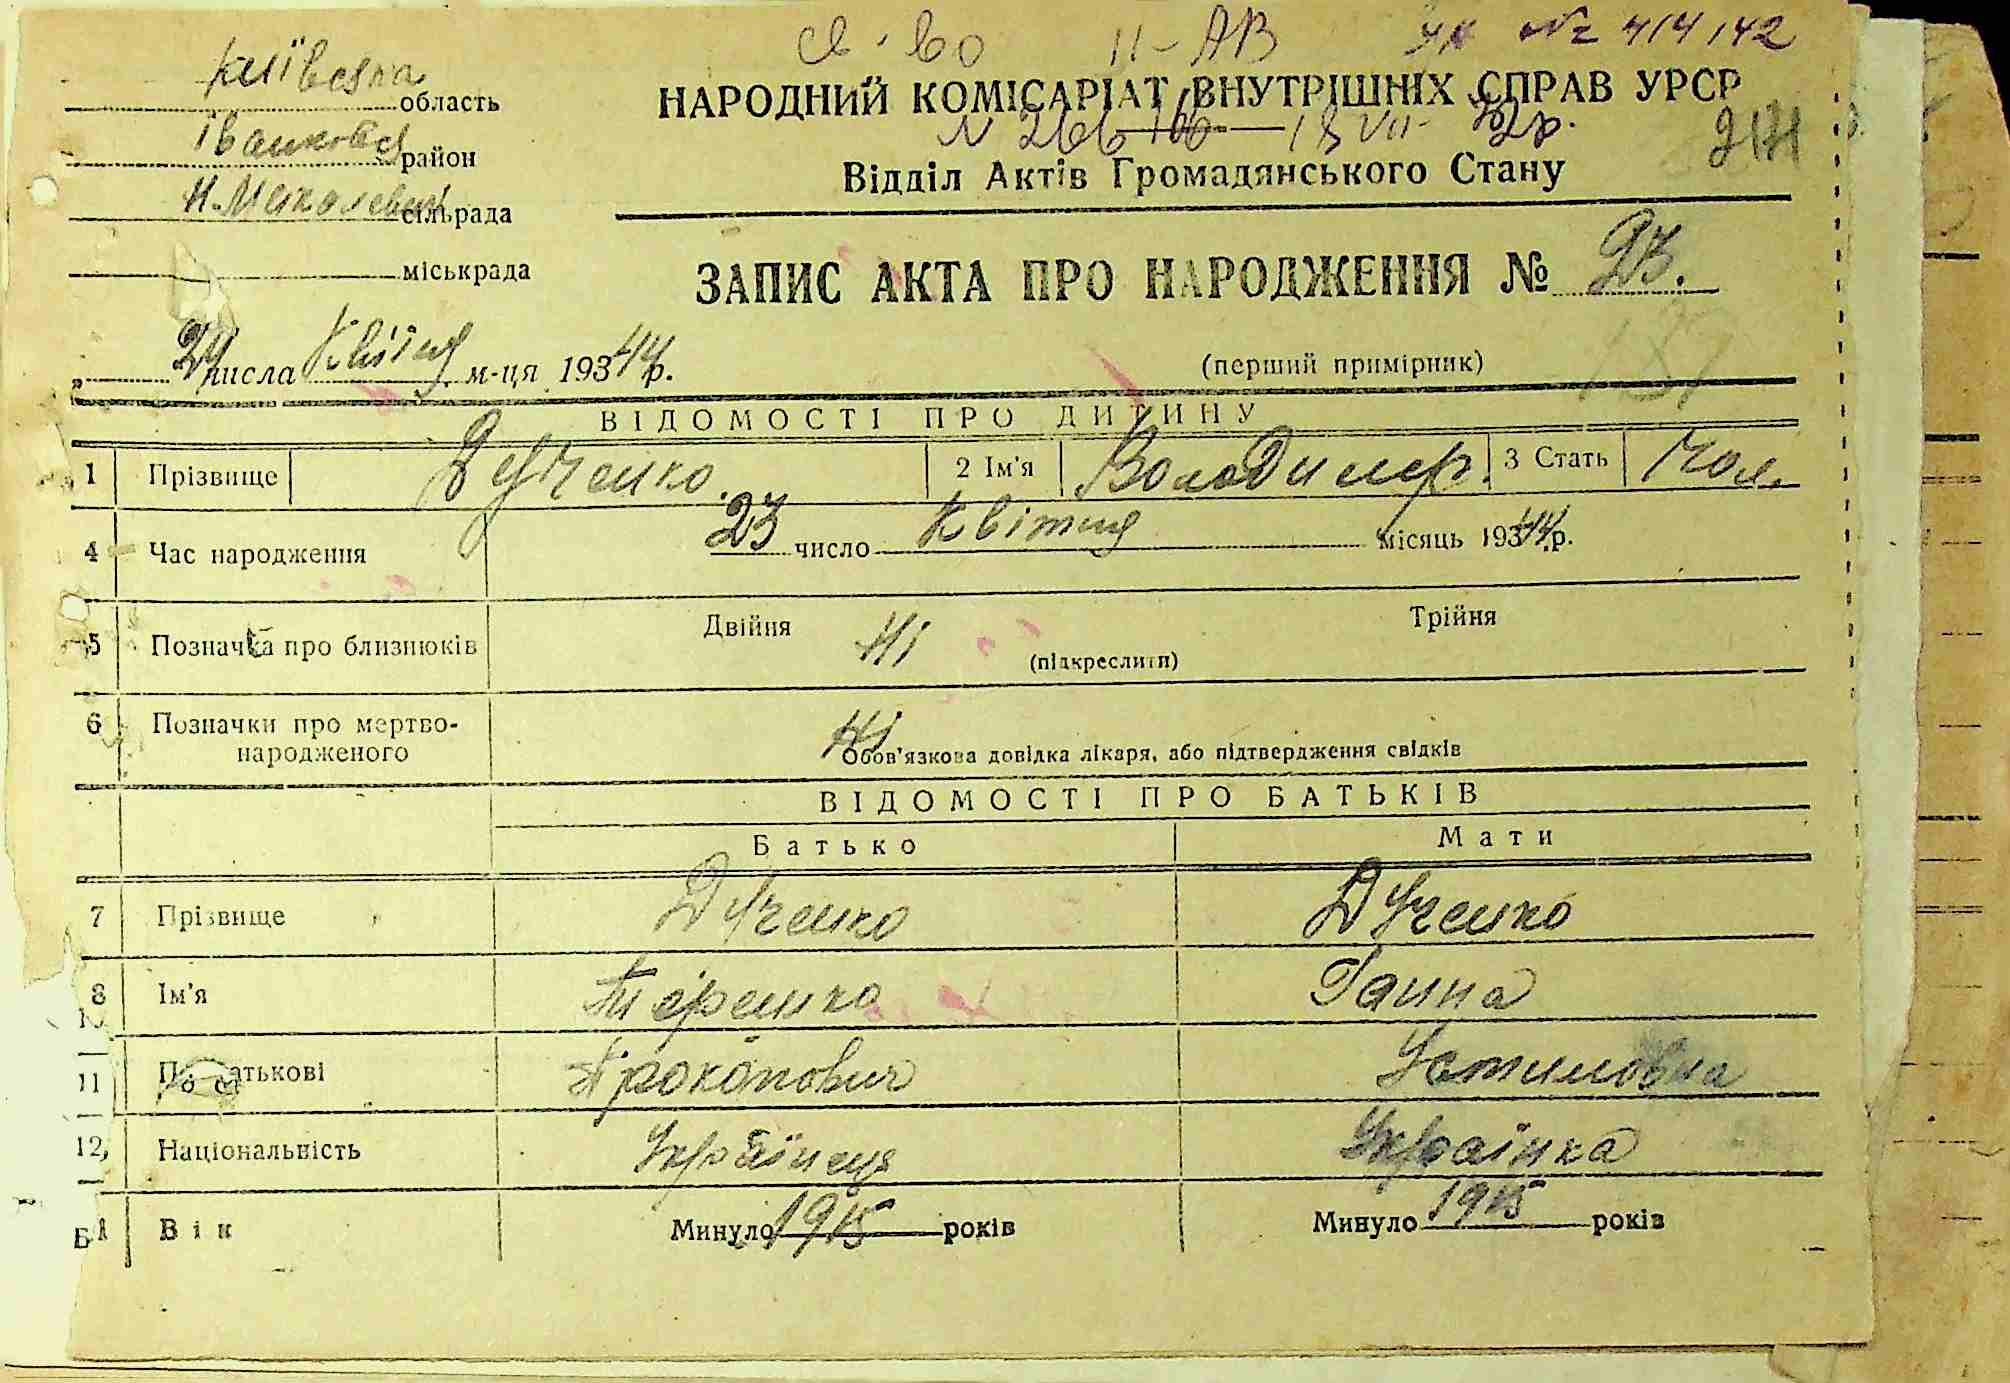 св-во II-АВ № 414142
Київська область
НАРОДНИЙ КОМІСАРІАТ ВНУТРІШНІХ СПРАВ УРСР
Іванків район
сільрада
Відділ Актів Громадянського Стану
міськрада
ЗАПИС АКТА ПРО НАРОДЖЕННЯ № 23.
187
24 числа Квітня м-ця 193 44 р.
(перший примірник)
ВІДОМОСТІ ПРО ДИТИНУ
1 Прізвище Дученко. 2 Ім'я Володимер. 3 Стать Чол.
4 Час народження 23 число Квітня місяць 193 44 р.
5 Позначка про близнюків Двійня Ні Трійня
(підкреслити)
6 Позначки про мертво-
народженого Ні
Обов'язкова довідка лікаря, або підтвердження свідків
ВІДОМОСТІ ПРО БАТЬКІВ
Батько Мати
7 Прізвище Дученко Дученко
8 Ім'я Терешко Ганна
11 По батькові Прокопович Устимовна
12 Національність Українець Українка
Вік Минуло 1915 років Минуло 1915 років